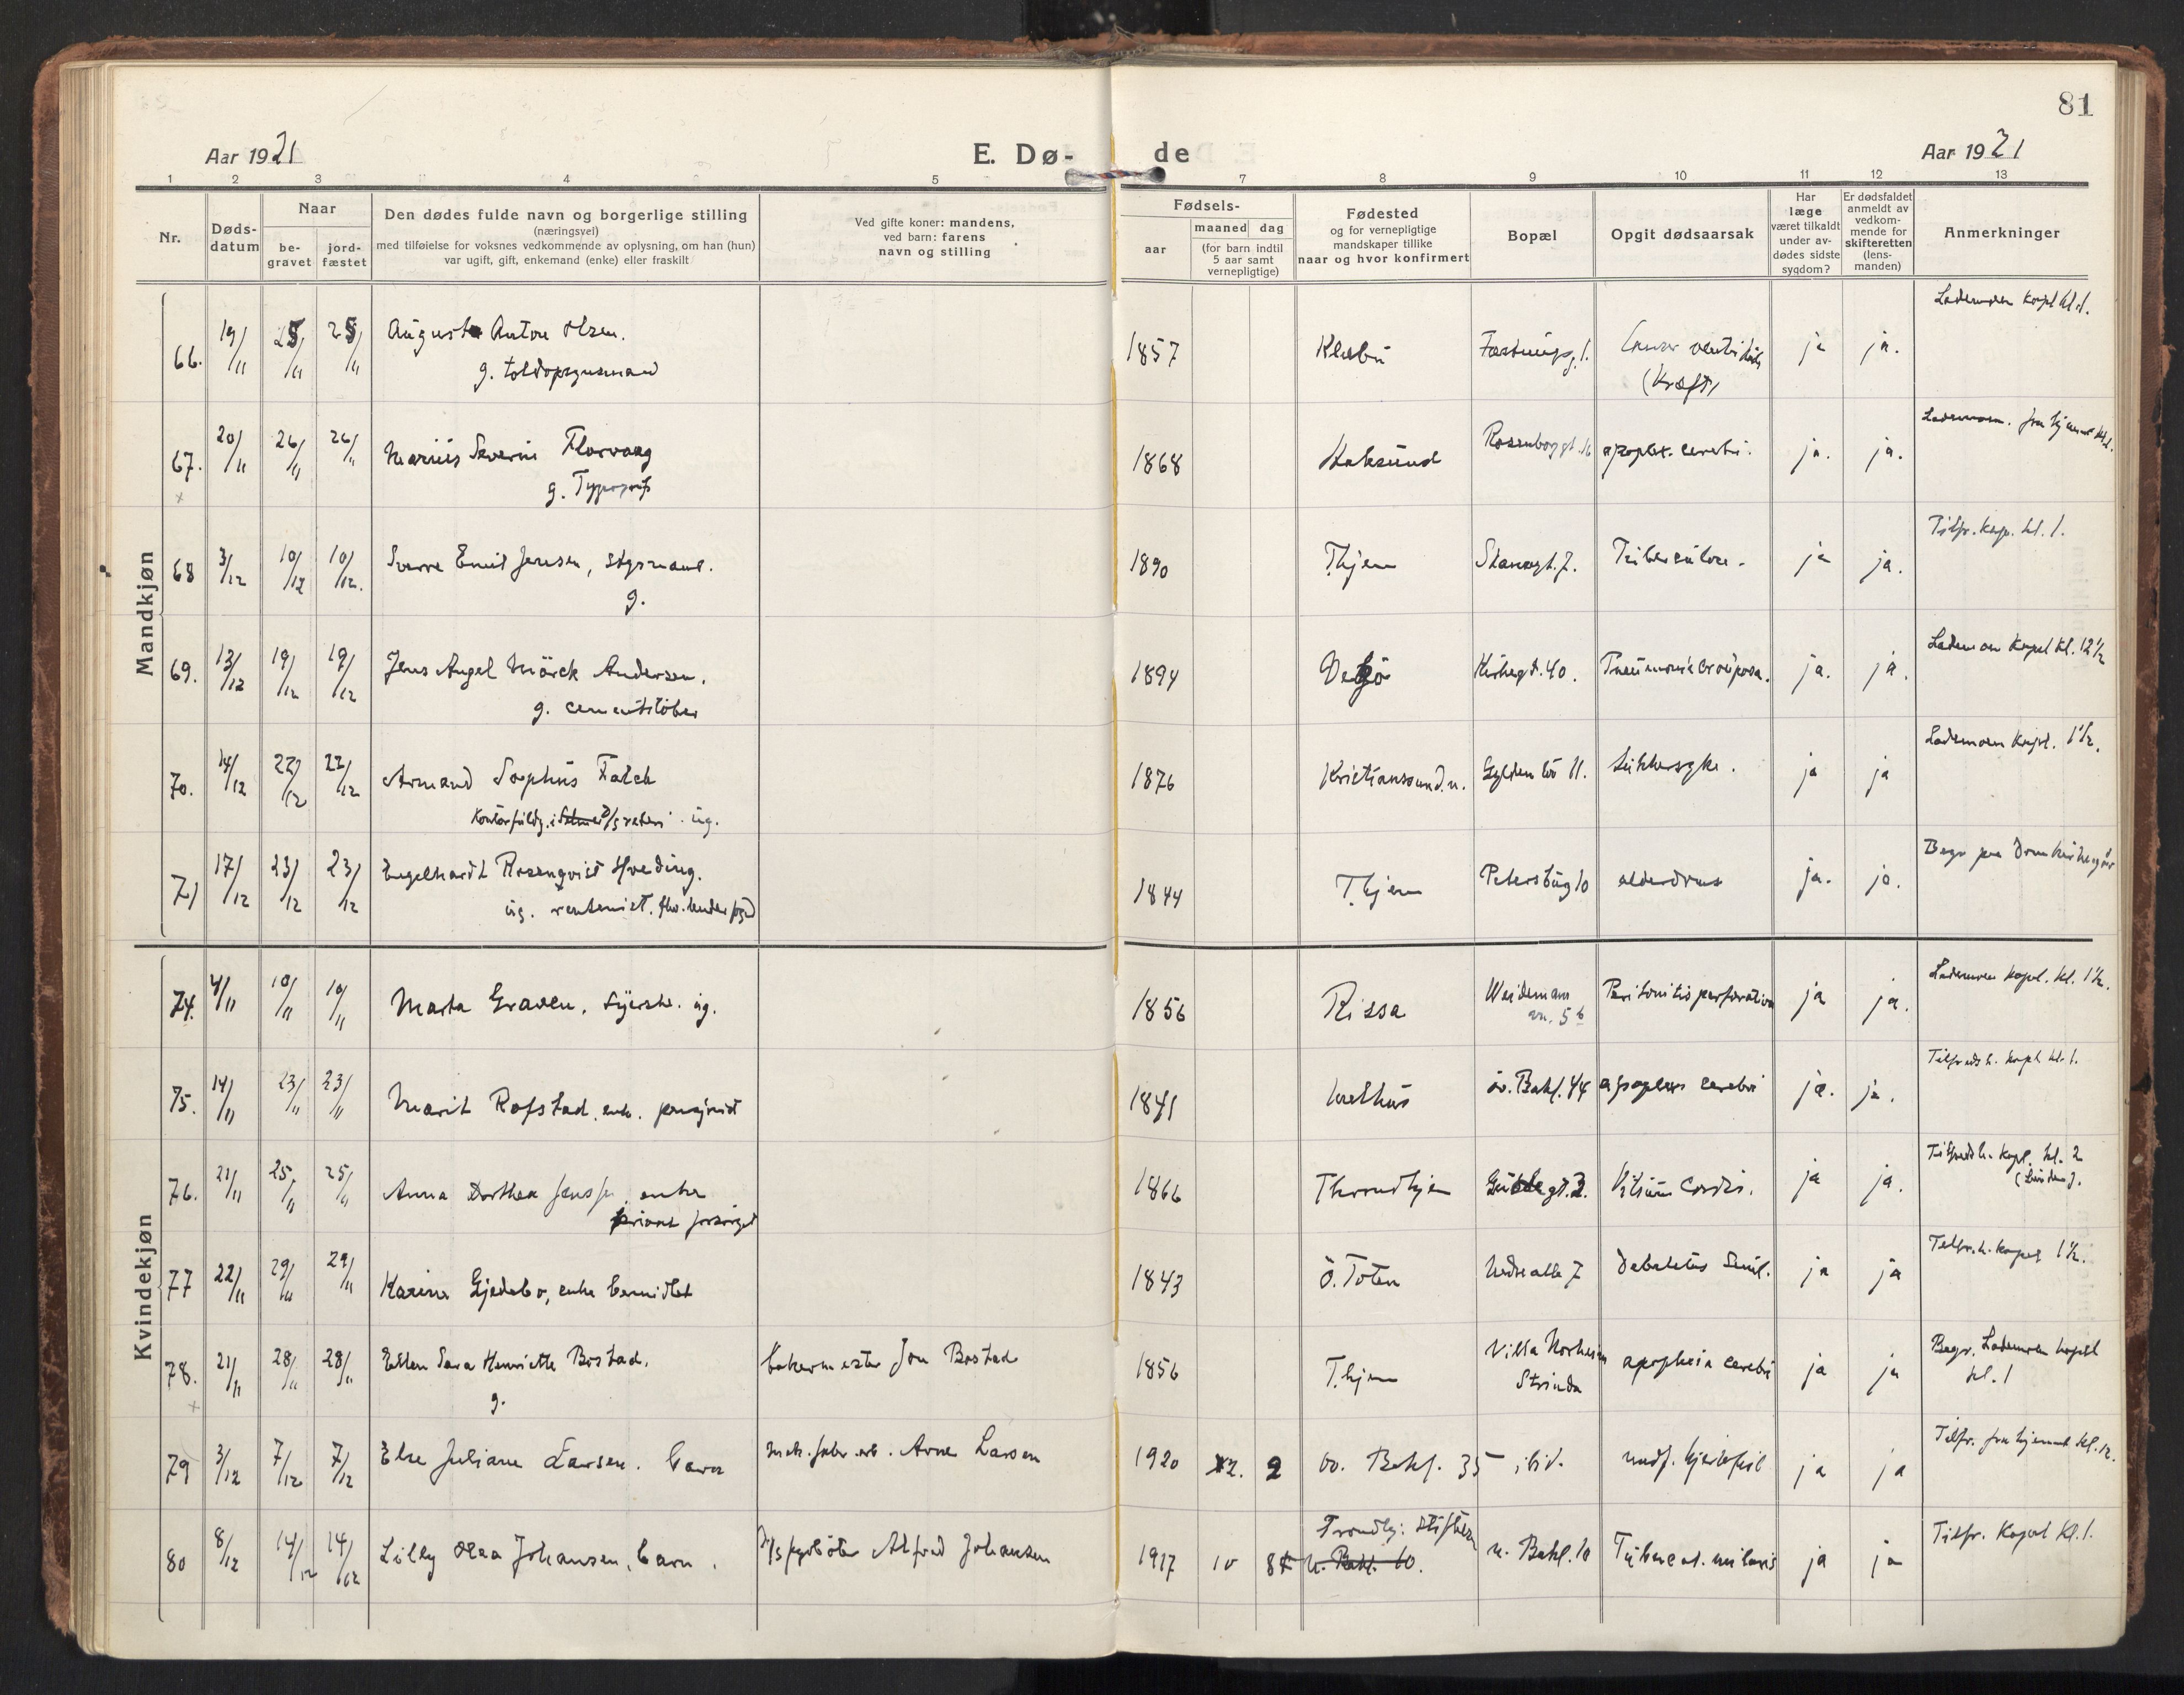 81
Aar 1921
E. Dø-
de
Aar 1921
1 2 3 4 5 7 8 9 10 11 12 13
Nr.
Døds-
datum
Naar
be-
gravet
jord-
fæstet
Den dødes fulde navn og borgerlige stilling
(næringsvei)
med tilføielse for voksnes vedkommende av oplysning, om han (hun)
var ugift, gift, enkemand (enke) eller fraskilt
Ved gifte koner: mandens,
ved barn: farens
navn og stilling
Fødsels-
aar
maaned dag
(for barn indtil
5 aar samt
vernepligtige)
Fødested
og for vernepligtige
mandskaper tillike
naar og hvor konfirmert
Bopæl
Opgit dødsaarsak
Har
læge
været tilkaldt
under av-
dødes sidste
sygdom?
Er dødsfaldet
anmeldt av
vedkom-
mende for
skifteretten
(lens-
manden)
Anmerkninger
Mandkjøn
66. 19/11 25/11 25/11 August Anton Olsen. 1857 Klæbu Fæstningsg. 1. Cancer ventriculi ja ja. Lademoen kapel kl. 1.
g. toldopsynsmand
(Kræft)
67. 20/11 26/11 26/11 Marius Severin Florvaag 1868 Haksund Rosenborggt. 16 apoplex. cerebri. ja. ja. Lademoen. fra hjemmet kl. 1.
g. Typograf
x
68 3/12 10/12 10/12. Sverre Emil Jensen, 1890 T.hjem Stavnegt. 7. Tuberculose. ja ja. Tilfr. kap. kl. 1.
g.
69. 13/12 19/12 19/12 Jens Angel Mörck Andersen. 1894 Vegö Kirkegt. 40. Pneumonia crouposa. ja. ja. Lademoen Kapel kl. 12½
g. cementstöber
70. 14/12 22/12 22/12 Armand Sophus Falck 1876 Kristianssund. n. Gyldenlö 11. Sukkersyke. ja ja Lademoen Kapel. 1½.
Kontorfuldm. i ug.
71 17/12 23/12 23/12 Engelhardt Rosenqvist Hveding. 1844 T.hjem Petersbug 10 alderdoms ja. ja. Begr paa Domkirkegår
ug. rentenist.
Kvindekjøn
74. 4/11 10/11 10/11 Marta Graven. syerske. ug. 1856 Rissa Weidemans ja ja. Lademoen kapel. kl. 1½.
vn. 5 b Peritonitis perforativa
75. 14/11 23/11 23/11 Marit Rofstad. enk. 1841 Melhus öv. Bakl. 44 apoplexi cerebri ja. ja. Tilfredsh. kapel kl. 1.
76. 21/11 25/11 25/11 Anna Dorthea enke 1866 Throndhjem Vitium Cordis. ja ja. Tilfredsh. Kapl. kl. 2
privat forsörget
77 22/11 29/11 29/11 Karine Gjedebo, enke bemidlet 1843 Ö. Toten Nedre alle 7 Debilitas Senil. ja ja Tilfr. h. kapel 1½.
78. 21/11 28/11 28/11 Ellen Sara Henriette Bostad. bakermester Jon Bostad 1856 T.hjem Villa Norheim apoplexia cerebri ja ja Begr. Lademoen kapel
g. Strinda kl. 1
x
79 3/12 7/12 7/12 Else Juliane Larsen. barn mek. fabr. arb. Arne Larsen 1920 12. 2 öv. Bakl. 35 ibid. medf. hjertefeil ja ja Tilfr. fra hjemmet kl. 12.
80 8/12 14/12 14/12 Lilly Olea Johansen, barn. D/S fyrböter Alfred Johansen 1917 10 8 Trondhj: Stiftelsen n. Bakl. 10 Tubercul. miliaris ja ja Tilfr. Kapel kl. 1.
n. Bakl. 10.